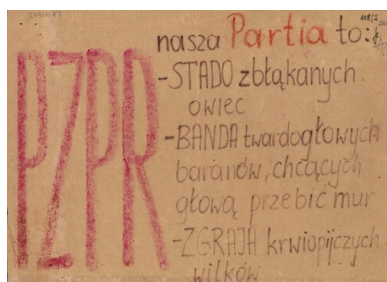 118/2
nasza Partia to:
PZPR
-STADO zbłąkanych
owiec
-BANDA twardogłowych
baranów, chcących
głową przebić mur
-ZGRAJA krwiopijczych
wilków